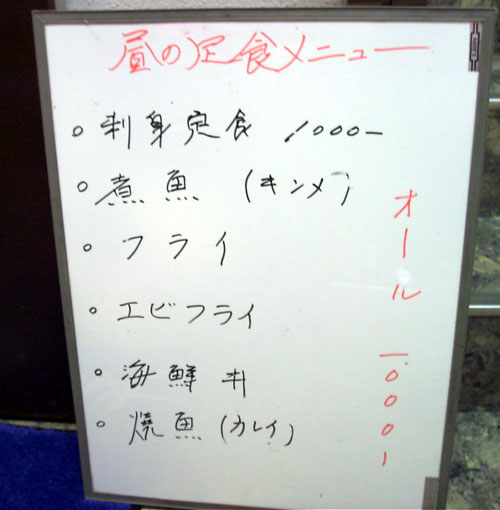 昼の定食メニュー
○ 刺身定食 1000ー
○ 煮魚 (キンメ)
○ フライ
○ エビフライ
○ 海鮮丼
○ 焼魚 (カレイ)
オール 1000ー